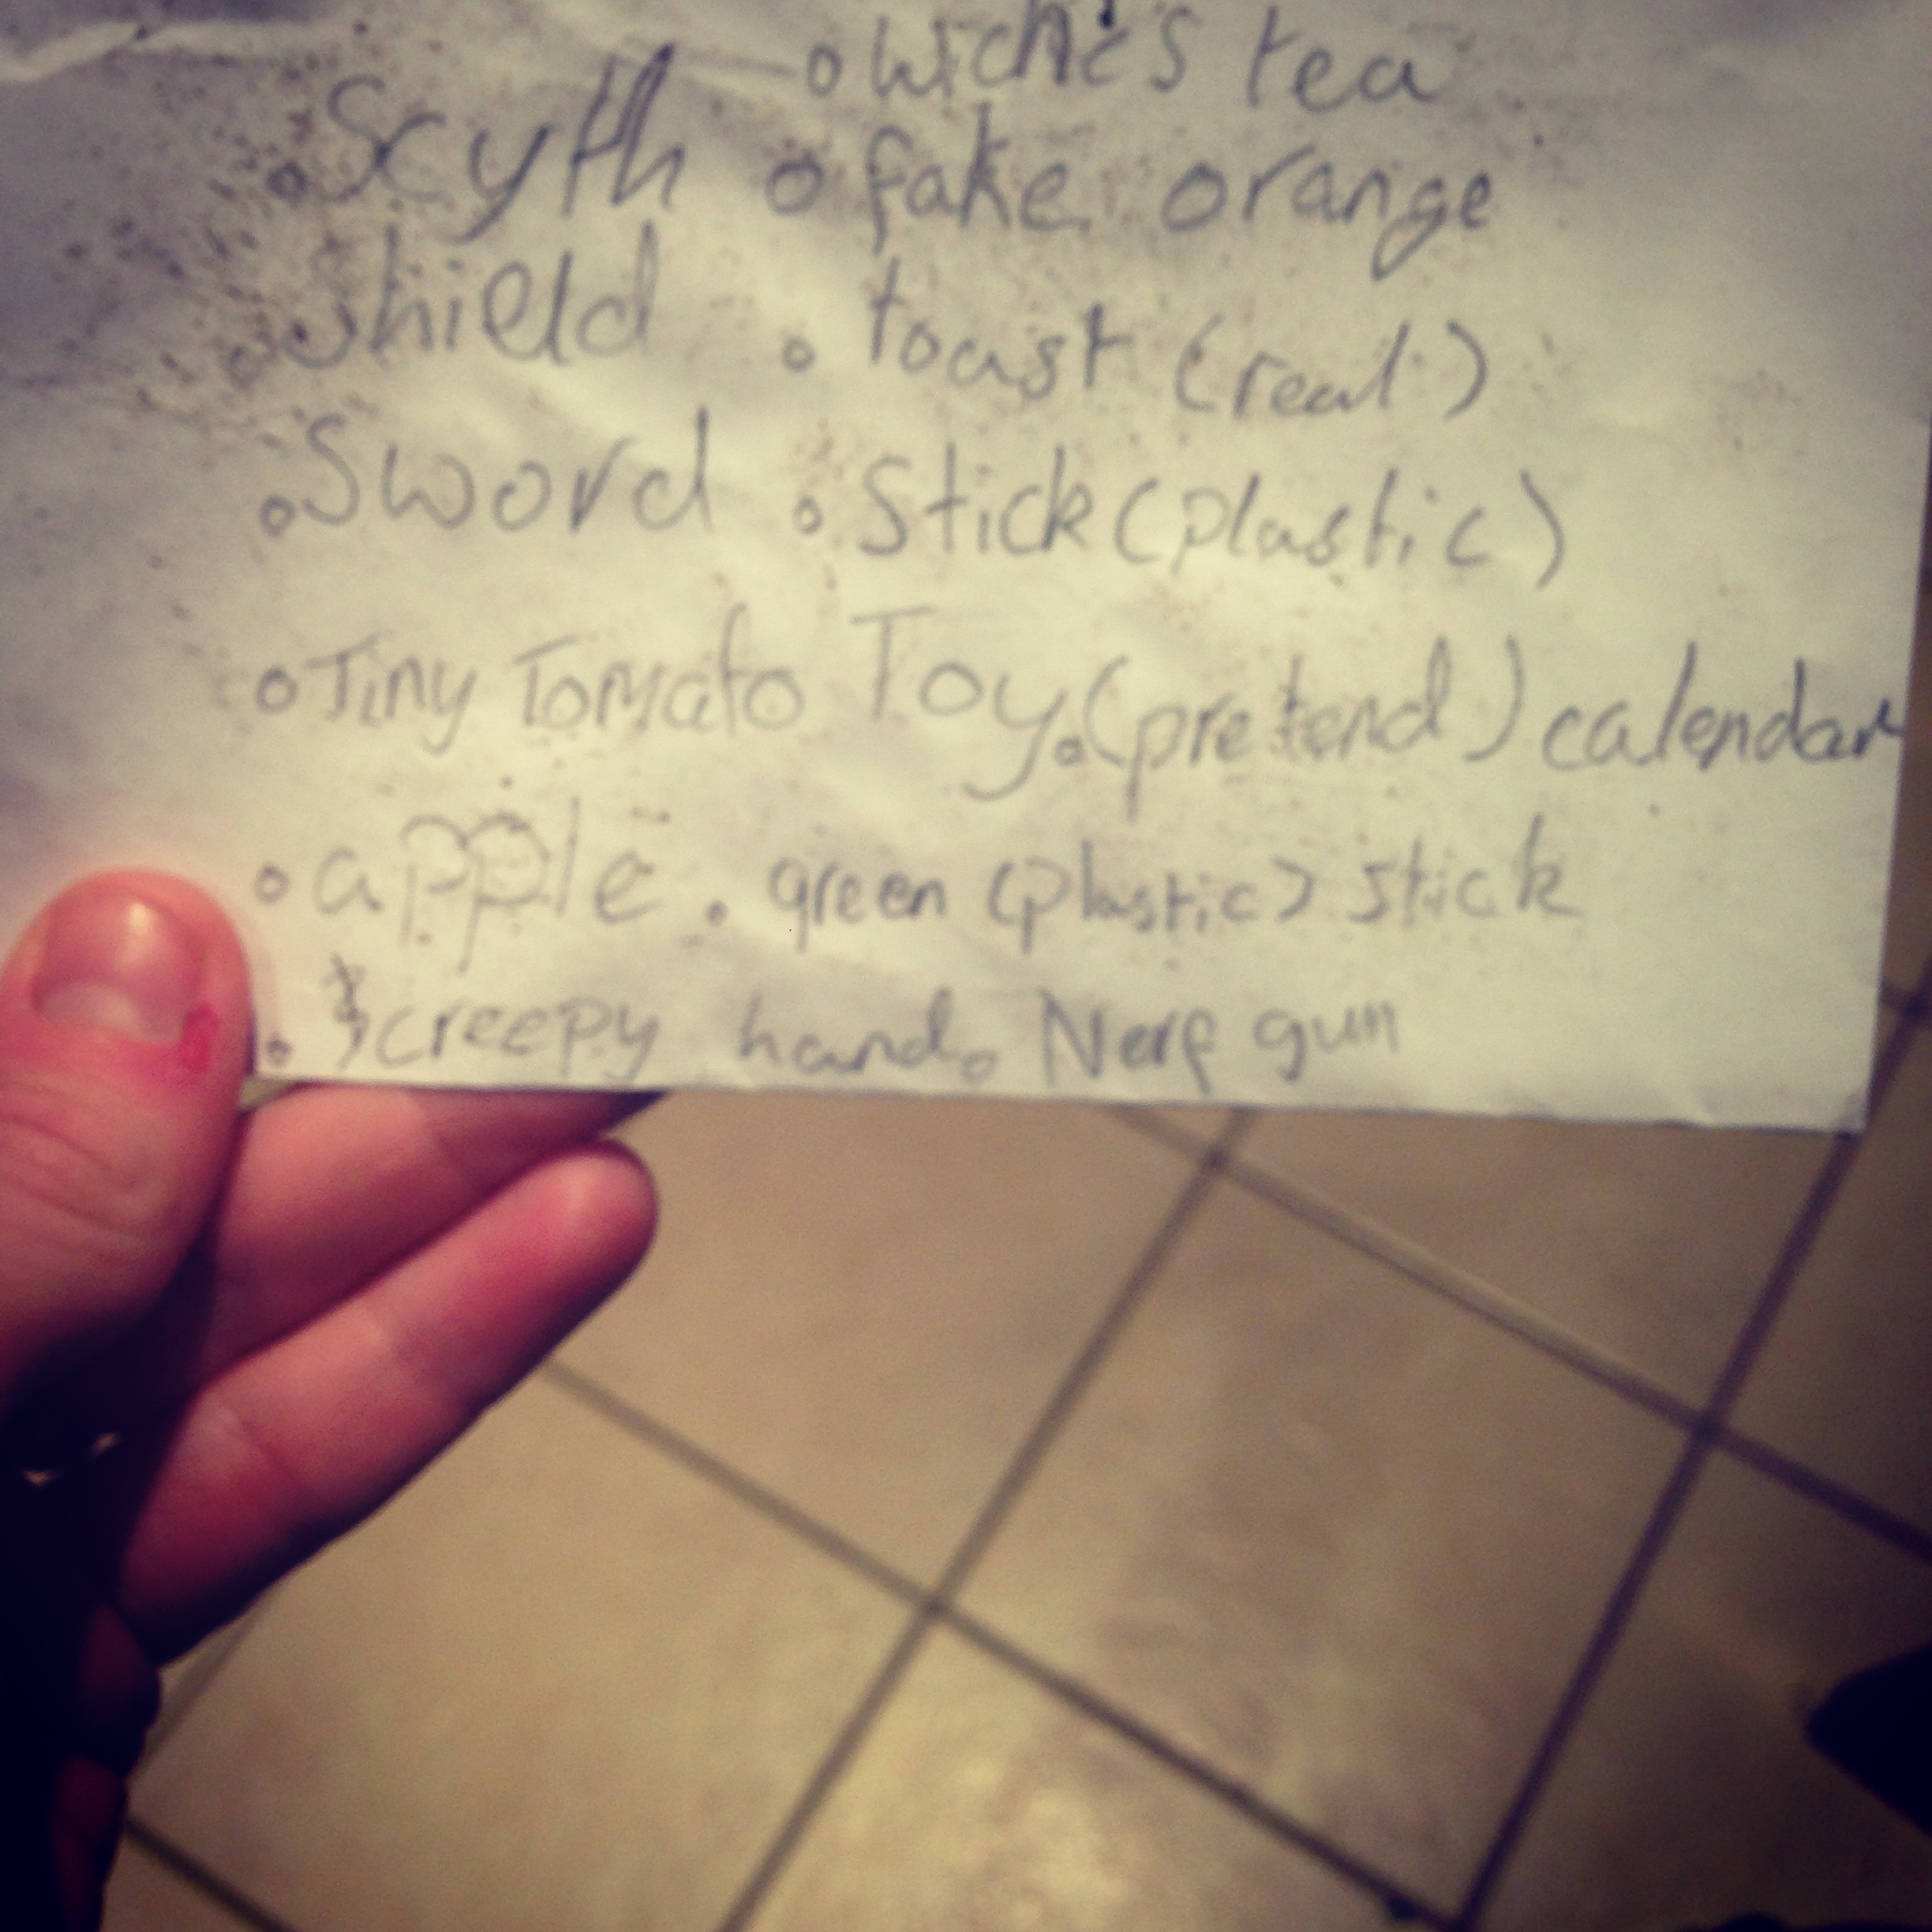 ◦ Wichi's tea
◦ Scyth ◦ fake orange
◦ Shield ◦ toast (real)
◦ Sword ◦ Stick (plastic)
◦ Tiny Tomato Toy ◦ (pretend) calendar
◦ apple • green (plastic) stick
• creepy hand ◦ Nerf gun